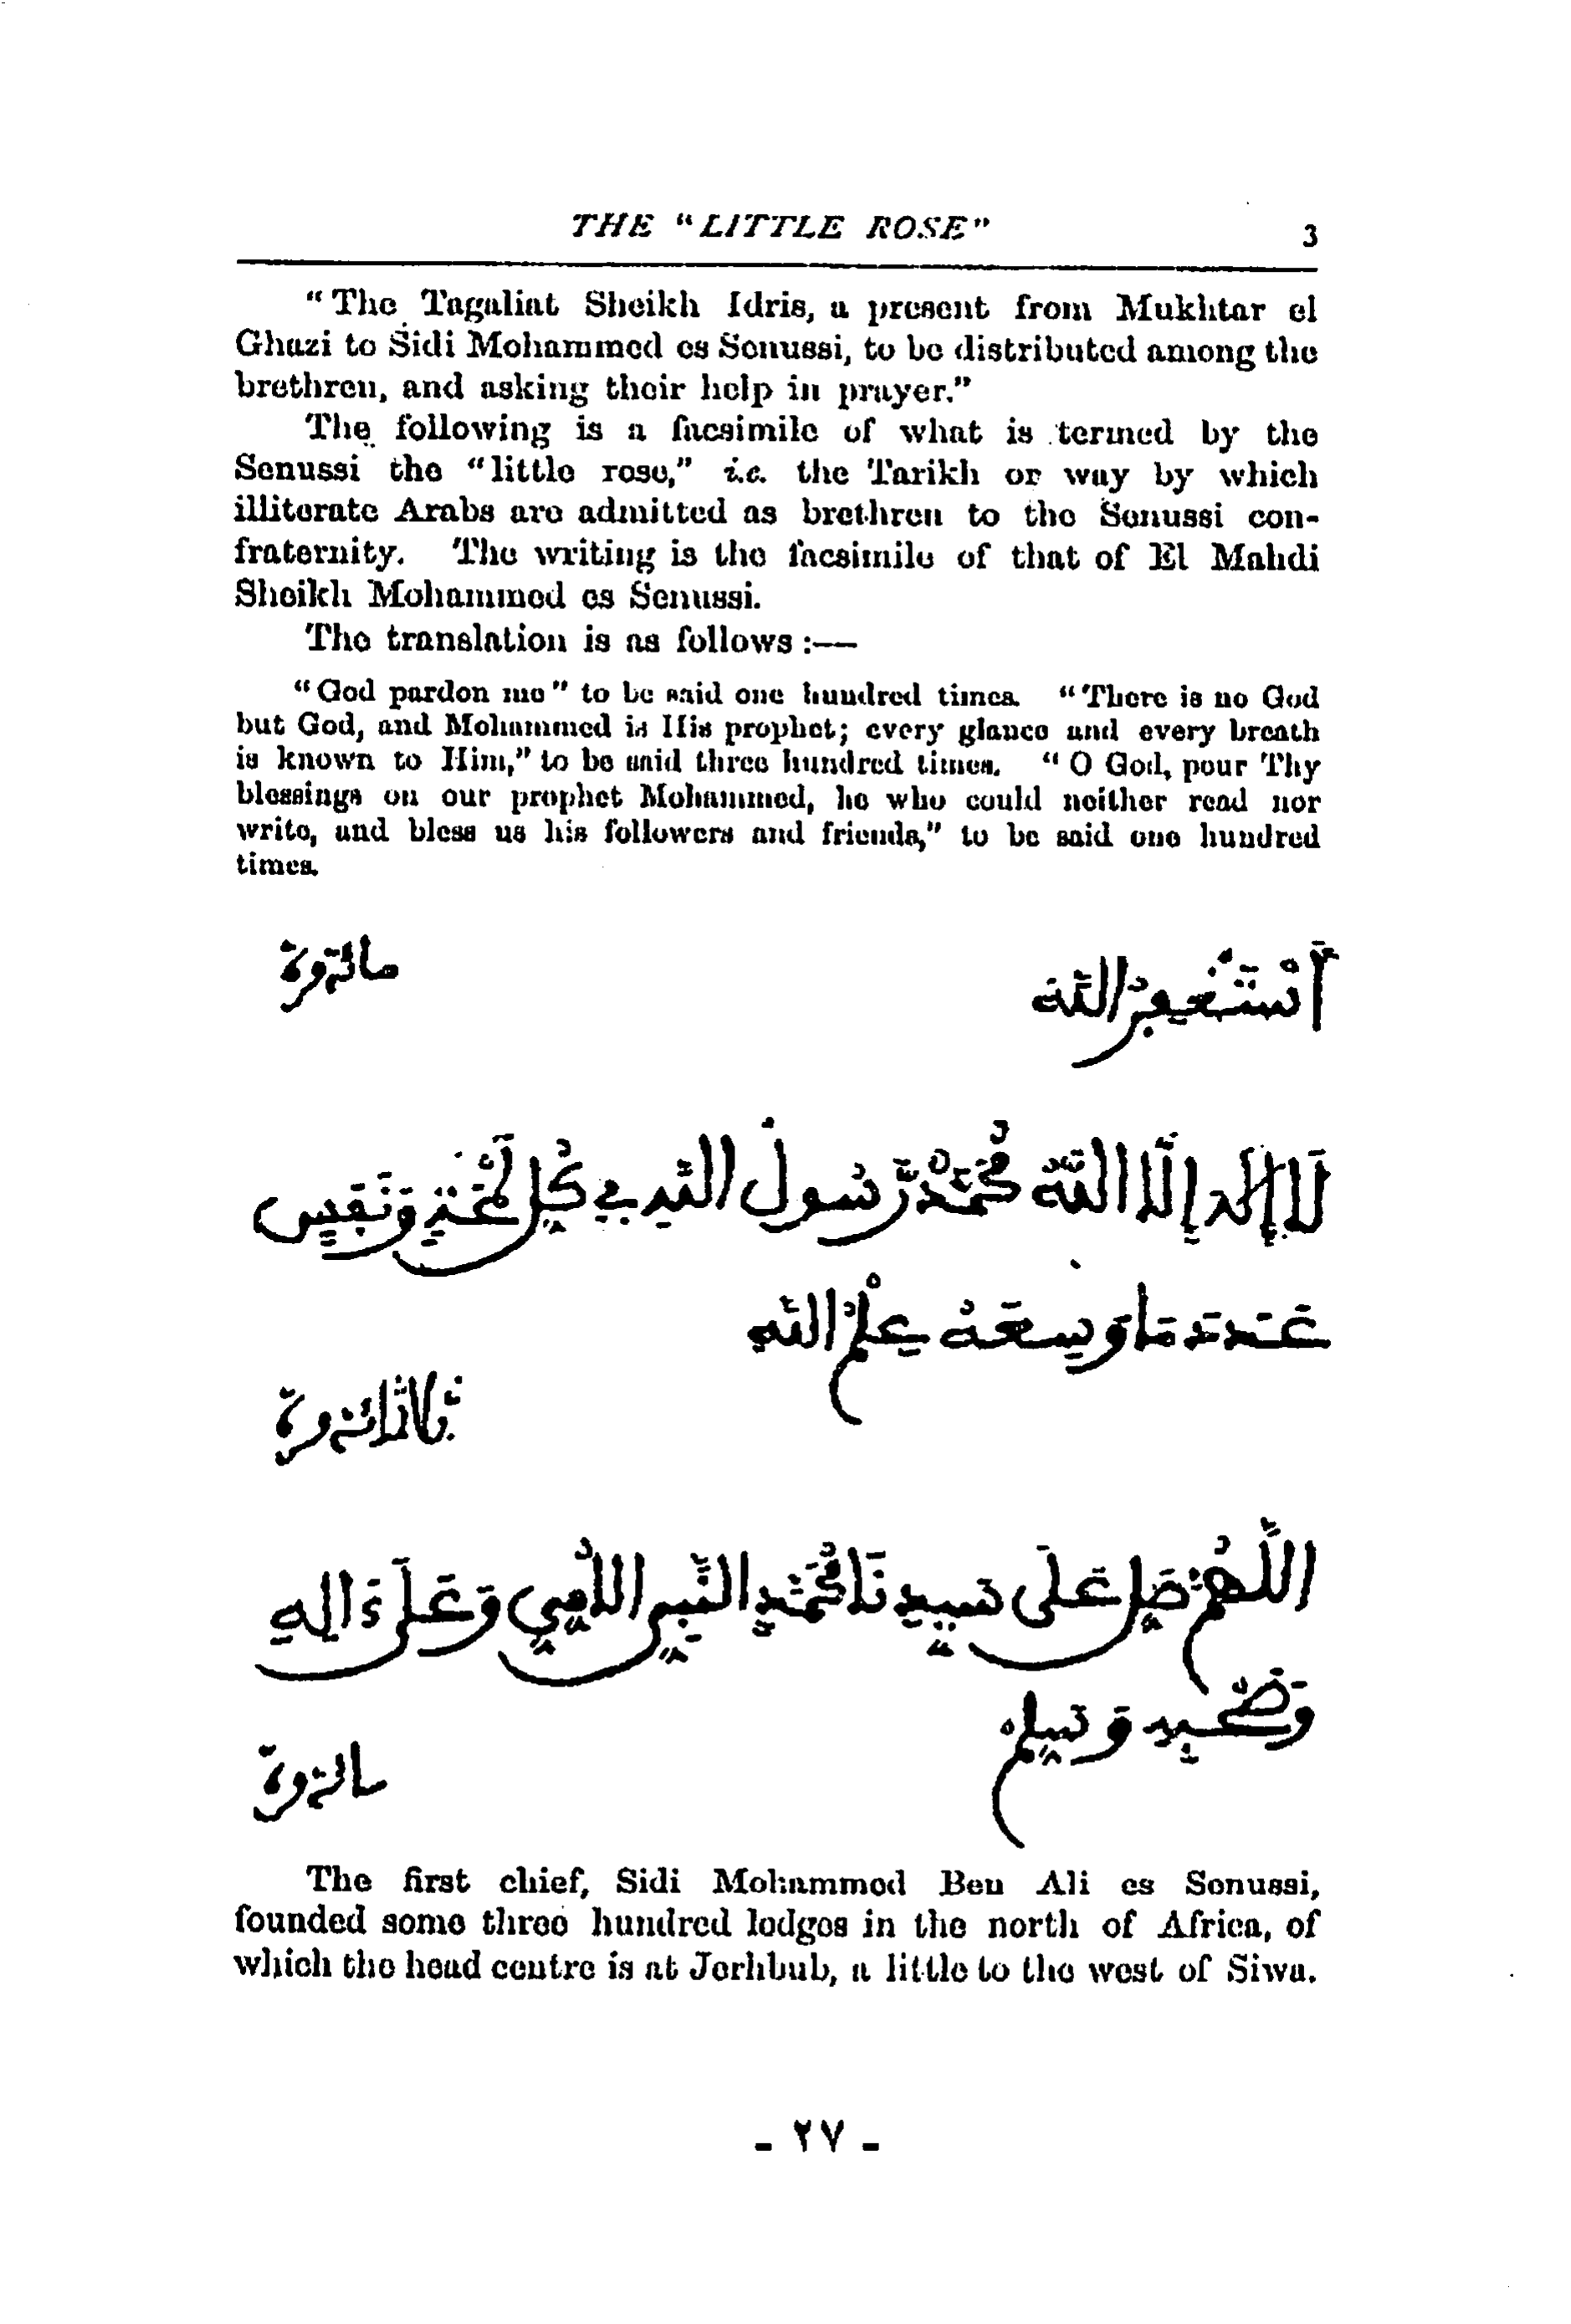 THE "LITTLE ROSE" 3
"The Tagaliat Sheikh Idris, a present from Mukhtar el
Ghazi to Sidi Mohammed es Senussi, to be distributed among the
brethren, and asking their help in prayer."
The following is a facsimile of what is termed by the
Senussi the "little rose," i.e. the Tarikh or way by which
illiterate Arabs are admitted as brethren to the Senussi con-
fraternity. The writing is the facsimile of that of El Mahdi
Sheikh Mohammed es Senussi.
The translation is as follows :—
"God pardon me" to be said one hundred times. "There is no God
but God, and Mohammed is His prophet; every glance and every breath
is known to Him," to be said three hundred times. "O God, pour Thy
blessings on our prophet Mohammed, he who could neither read nor
write, and bless us his followers and friends," to be said one hundred
times.
أَسْتَغْفِرُ اللَّهَ مائة مرة
لَا إِلَهَ إِلَّا اللَّهُ مُحَمَّدٌ رَّسُولُ اللَّهِ فِي كُلِّ لَمْحَةٍ وَنَفَسٍ
عَدَدَ مَا وَسِعَهُ عِلْمُ اللَّهِ
ثلاثمائة مرة
اللَّهُمَّ صَلِّ عَلَى سَيِّدِنَا مُحَمَّدٍ النَّبِيِّ الْأُمِّيِّ وَعَلَى ءَالِهِ
وَصَحْبِهِ وَسَلِّمْ
مائة مرة
The first chief, Sidi Mohammed Ben Ali es Senussi,
founded some three hundred lodges in the north of Africa, of
which the head centre is at Jerhbub, a little to the west of Siwa.
- ٢٧ -